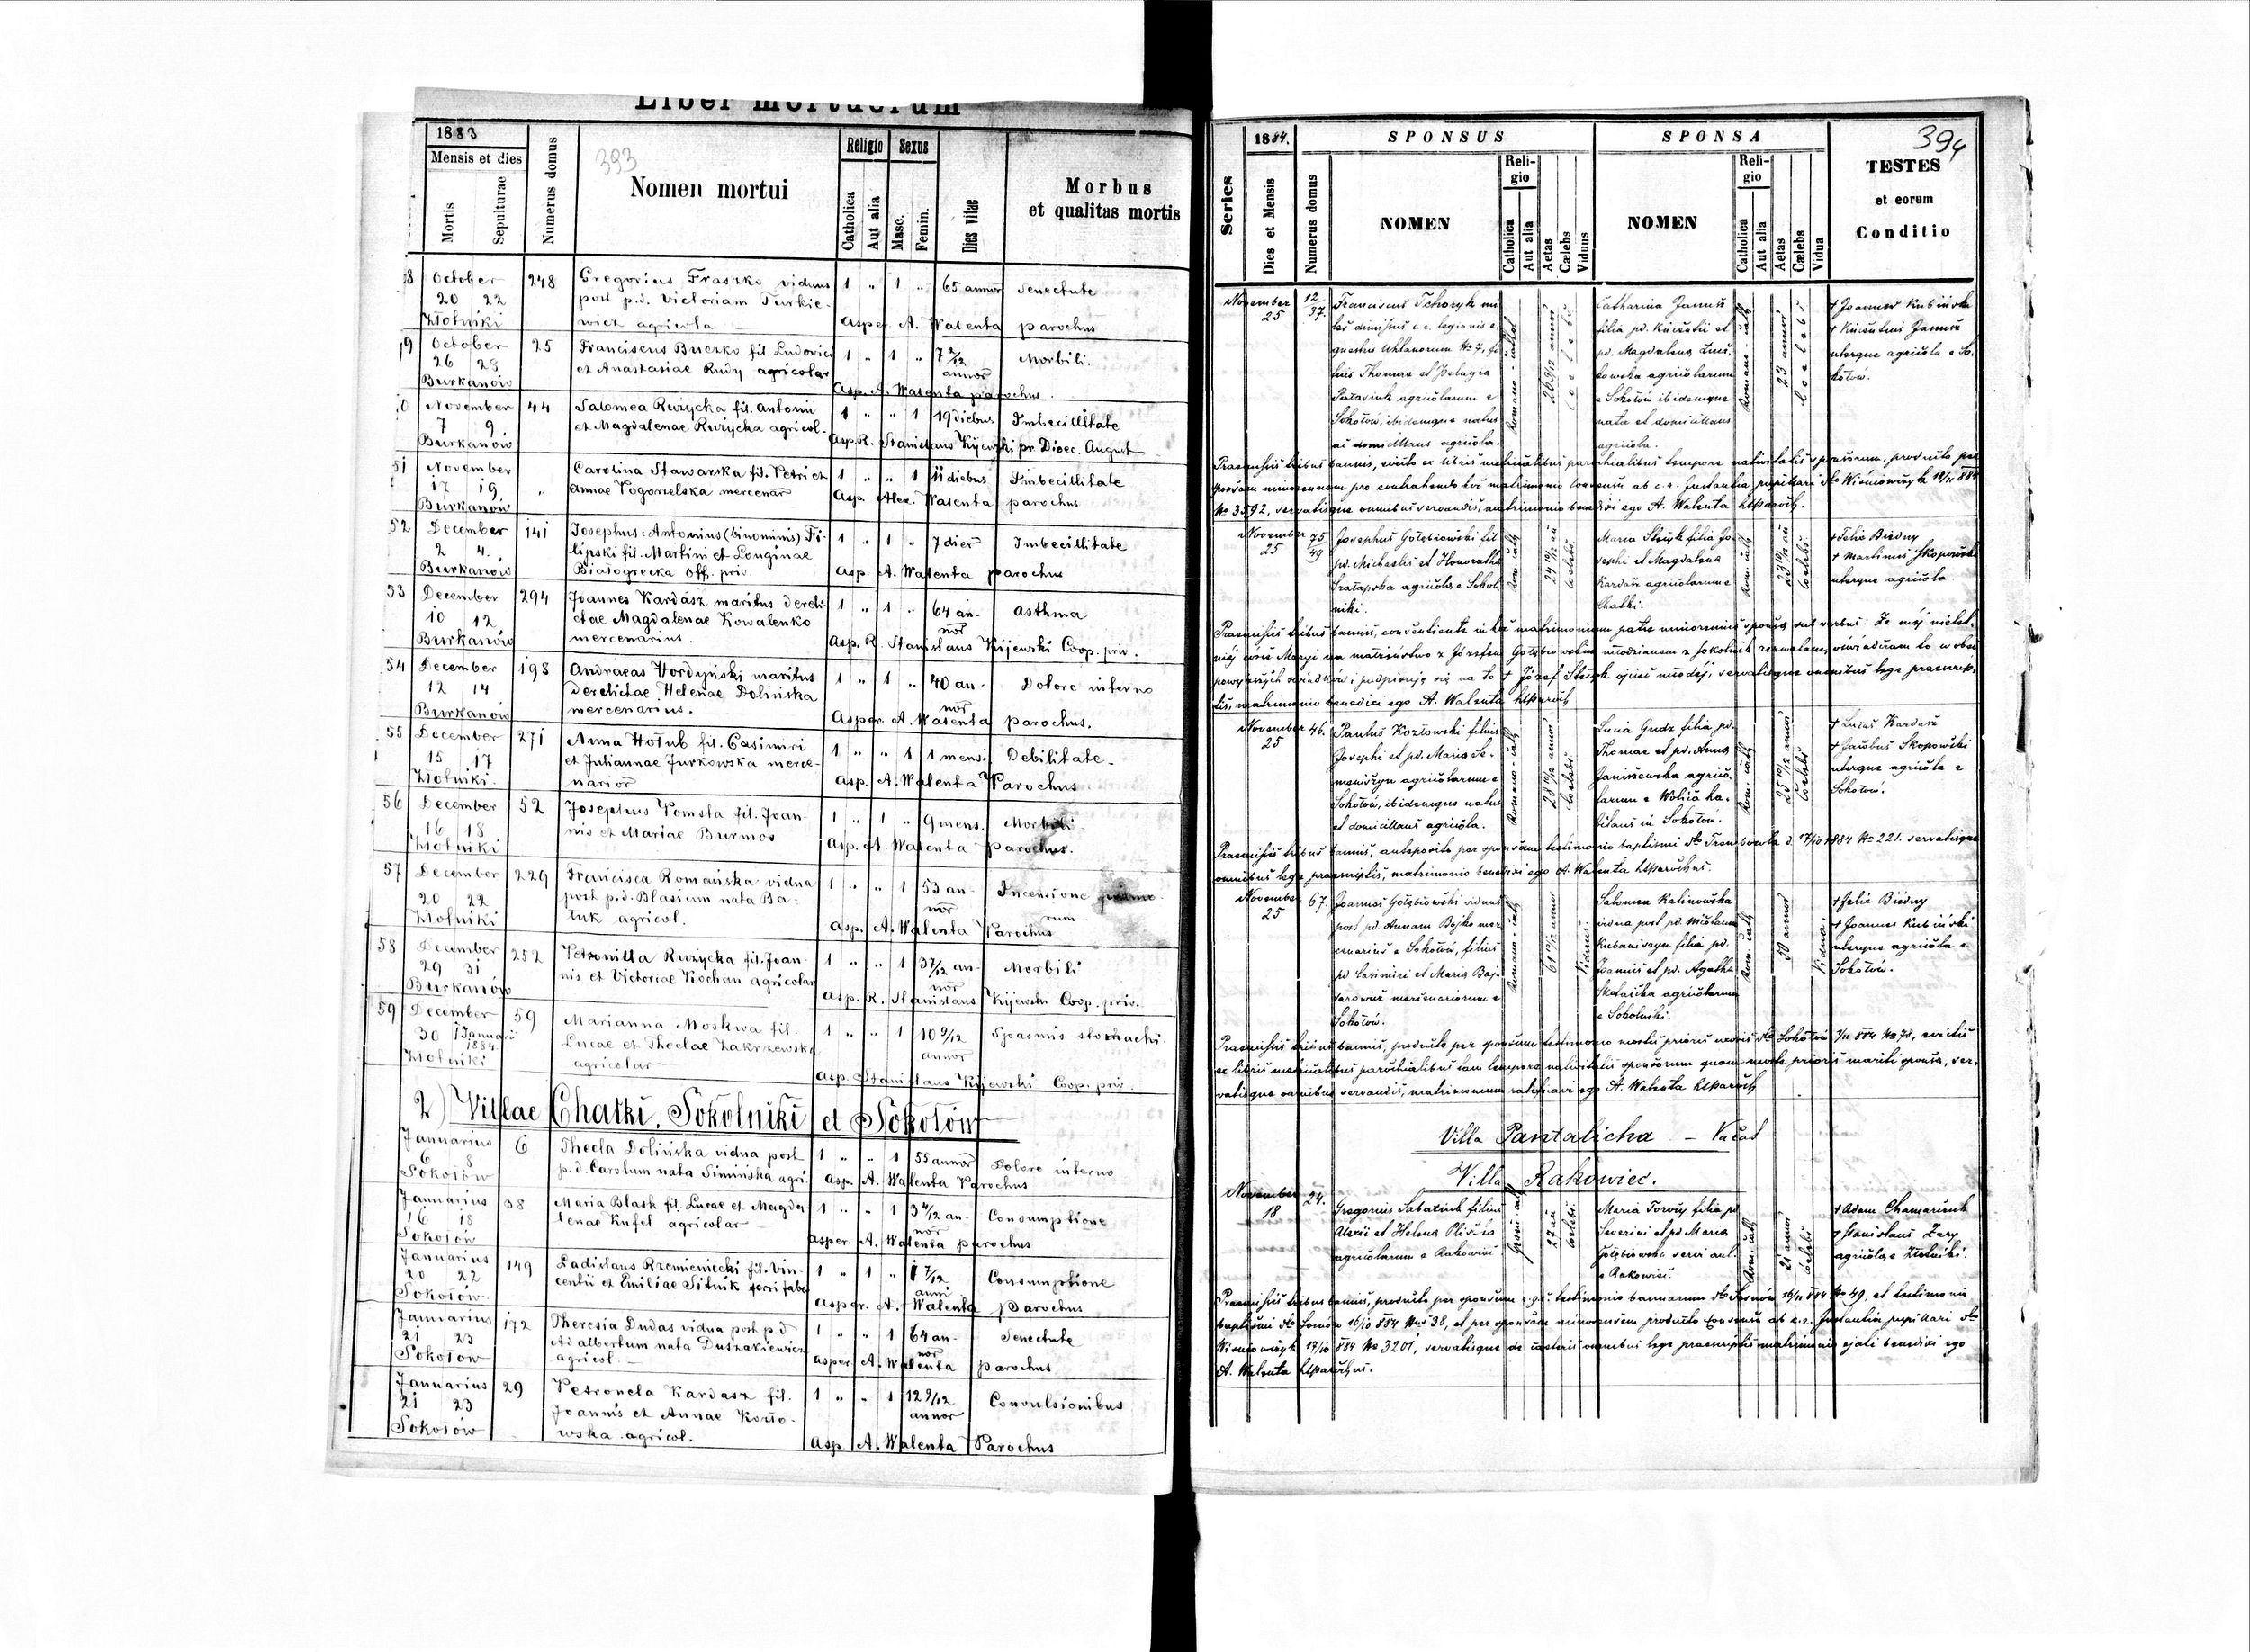 Liber mortuorum
1883
Mensis et dies
Mortis
Sepulturae
Numerus domus
393
Nomen mortui
Religio
Catholica
Aut alia
Sexus
Masc.
Femin.
Dies vitae
Morbus
et qualitas mortis
8 October 248 Gregorius Fraszko viduus 1 " 1 " 65 annor Senectute
20 22 post p.d. Victoriam Turkie-
Złotniki wicz agricola Asper A. Walenta parochus
9 October 25 Franciscus Buczko fil. Ludovici 1 " 1 " 7 2/12 Morbili.
26 28 et Anastasiae Rudy agricolar annor
Burkanów Asp. A. Walenta parochus.
0 November 44 Salomea Ruzycka fil. Antoni 1 " " 1 19 diebus Imbecillitate
7 9 et Magdalenae Ruzycka agricol.
Burkanów Asp. R. Stanislaus Kijewski pr. Dioec. August
51 November Carolina Stawarska fil. Petri et 1 " " 1 11 diebus Imbecillitate
17 19 " Annae Pogorzelska mercenar
Burkanów Asp. Alex. Walenta parochus
52 December 141 Josephus-Antonius (binominis) Fi- 1 " 1 " 7 dier Imbecillitate
2 4. lipski fil. Martini et Longinae
Burkanów Białogłecka Off. priv. Asp. A. Walenta parochus
53 December 294 Joannes Kardasz maritus dereli- 1 " 1 " 64 an- Asthma
10 12 ctae Magdalenae Kowalenko nor
Burkanów mercenarius. Asp. R. Stanislaus Kijewski Coop. priv.
54 December 198 Andraeas Hordyński maritus 1 " 1 " 40 an- Dolore interno
12 14 derelictae Helenae Dolińska nor
Burkanów mercenarius. Asper. A. Walenta parochus.
55 December 271 Anna Hołub fil. Casimiri 1 " " 1 1 mensi Debilitate
15 17 et Juliannae Jurkowska merce-
Złotniki. narior Asp. A. Walenta Parochus
56 December 52 Josephus Pomsta fil. Joan- 1 " 1 " 9 mens. Morbili.
16 18 nis et Mariae Burmos
Złotniki Asp. A. Walenta Parochus.
57 December 229 Francisca Romańska vidua 1 " " 1 53 an- Incensione
20 22 post p.d. Blasium nata Ba- nor
Złotniki tuk agricol. Asp. A. Walenta Parochus
58 December 252 Petronilla Ruzycka fil. Joan- 1 " " 1 3 7/12 an- Morbili
29 31 nis et Victoriae Kochan agricolar nor
Burkanów Asp. R. Stanislaus Kijewski Coop. priv.
59 December 59 Marianna Moskwa fil. 1 " " 1 10 9/12 Spasmis stomachi.
30 1 Januarii 1884 Lucae et Theclae Zakrzewska annor
Złotniki agricolar Asp. Stanislaus Kijewski Coop. priv.
2) Villae Chatki, Sokolniki et Sokołów
Januarius 6 Thecla Dolińska vidua post 1 " " 1 55 annor Dolore interno
6 8 p.d. Carolum nata Simińska agri.
Sokołów Asp. A. Walenta Parochus
Januarius 38 Maria Błask fil. Lucae et Magda- 1 " " 1 3 4/12 an- Consumptione
16 18 lenae Kufel agricolar nor
Sokołów Asper. A. Walenta parochus
Januarius 149 Ladislaus Rzemieniecki fil. Vin- 1 " 1 " 1 7/12 Consumptione
20 22 centii et Emiliae Sitnik ferri fabr anni
Sokołów Asper. A. Walenta parochus
Januarius 172 Theresia Dudas vidua post p.d 1 " " 1 64 an- Senectute
21 23 Adalbertum nata Duszakiewicz nor
Sokołów agricol. Asper. A. Walenta parochus
Januarius 29 Petronela Kardasz fil. 1 " " 1 12 9/12 Convulsionibus
21 23 Joannis et Annae Kozło- annor
Sokołów wska agricol. Asp. A. Walenta Parochus
394
Series
1884.
Dies et Mensis
Numerus domus
SPONSUS
NOMEN
Religio
Catholica
Aut alia
Aetas
Cælebs
Viduus
SPONSA
NOMEN
Religio
Catholica
Aut alia
Aetas
Cælebs
Vidua
TESTES
et eorum
Conditio
November 12/37. Franciscus Tchoryk mi- Catharina Janusz + Joannes Kubiński
25 les dimissus c.r. legionis e- filia pd. et + Janusz
questris Uhlanorum No 7, fi- pd. Magdalena uterque agricola e So-
lius Thomae et Pelagia agricolarum kołów.
agricolarum e e Sokołów ibidemque
Sokołów, ibidemque natus nata et domicilians
ac domicilians agricola. agricola.
Romano-cathol 26 9/12 annor Coelebs Romano-cath 23 annor Coelebs
Praemissis tribus bannis, ex libris metricalibus parochialibus tempore nativitatis sponsorum, producto per
sponsam minorennem pro contrahendo hoc matrimonio consensu ab c.r. Instantia pupillari dto Wiśniowczyk 10/11 884
No 3592, servatisque omnibus servandis, matrimonio benedixi ego A. Walenta parochus.
November 75/49 Josephus Gołębiowski fil. Maria filia Jo- + Felix Biedny
25 pd. Michaelis et Honoratha sephi et Magdalena + Martinus Skopowski
agricola e Sokol- Kardasz agricolarum e uterque agricola.
niki. Chatki.
Rom. cath 24 10/12 an Coelebs Rom. cath 23 10/12 an Coelebs
Praemissis tribus bannis, consentiente in hoc matrimonium patre minorennis sponsa sub verbis: Że mej nielet-
niej córce Maryi na małżeństwo z Józefem Gołębiowskim młodzianem z Sokolnik zezwalam, oświadczam to w obec
powyższych świadków i podpisuję się na to + Józef ojciec młodej, servatisque omnibus lege praescrip-
tis, matrimonio benedixi ego A. Walenta
November 46. Paulus Kozłowski filius Lucia Gudz filia pd. + Lucas Kardasz
25 Josephi et pd. Maria Se- Thomae et pd. Anna + Jacobus Skopowski
meniszyn agricolarum e Janiszewska agrico- uterque agricola e
Sokołów, ibidemque natus larum e Wolica ha- Sokołów.
et domicilians agricola. bitans in Sokołów.
Romano-cath 28 10/12 annor Coelebs Rom. cath 25 10/12 annor Coelebs
Praemissis tribus bannis, anteposito per sponsam testimonio baptismi dto d. 17/10 1884 No 221. servatisque
omnibus lege praescriptis, matrimonio benedixi ego A. Walenta parochus.
November 67. Joannes Gołębiowski viduus Salomea Kalinowska + Felix Biedny
25 post pd. Annam Bojko mer- vidua post pd. Nicolaum + Joannes Kubiński
cenarius e Sokołów, filius filia pd. uterque agricola e
pd Casimiri et Maria Joannis et pd. Agatha Sokołów.
mercenariorum e agricolarum
Sokołów. e Sokolniki.
Romano-cath 61 annor Viduus. Rom. cath 50 annor Vidua.
Praemissis tribus bannis, producto per sponsum testimonio mortis prioris uxoris dto Sokołów 884 No 78,
ex libris metricalibus parochialibus tam tempore nativitatis sponsorum quam morte prioris mariti sponsa, ser-
vatisque omnibus servandis, matrimonium ego A. Walenta
Villa Pantalicha — Vacat
Villa Rakowiec.
November 24. Gregorius Sabatiuk filius Maria filia pd + Adam
18 Alexii et Helena Severini et pd Maria + Stanislaus Zary
agricolarum e Rakowiec Gołębiowska agricola, e Złotniki.
e Rakowiec.
Graeci cath 27 an Coelebs Rom. cath 21 annor Coelebs
Praemissis tribus bannis, producto per sponsum r.g.c. testimonio bannorum dto Sosnów 16/11 884 No 49, et testimonio
baptismi dto Sosnów 16/10 884 No 38, et per sponsam minorennem producto consensu ab c.r. Instantia pupillari dto
Wiśniowczyk 17/10 884 No 3201, servatisque de caeteris omnibus lege praescriptis matrimonio benedixi ego
A. Walenta parochus.